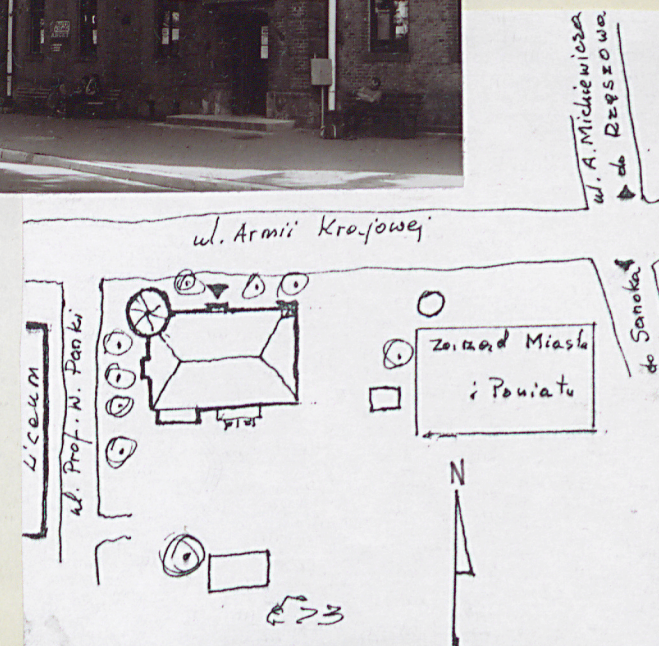 ul. A. Mickiewicza
do Rzeszowa
ul. Armii Krajowej
do Sanoka
Liceum
ul. Prof. W. Panki
Zarząd Miasta
i Powiatu
N